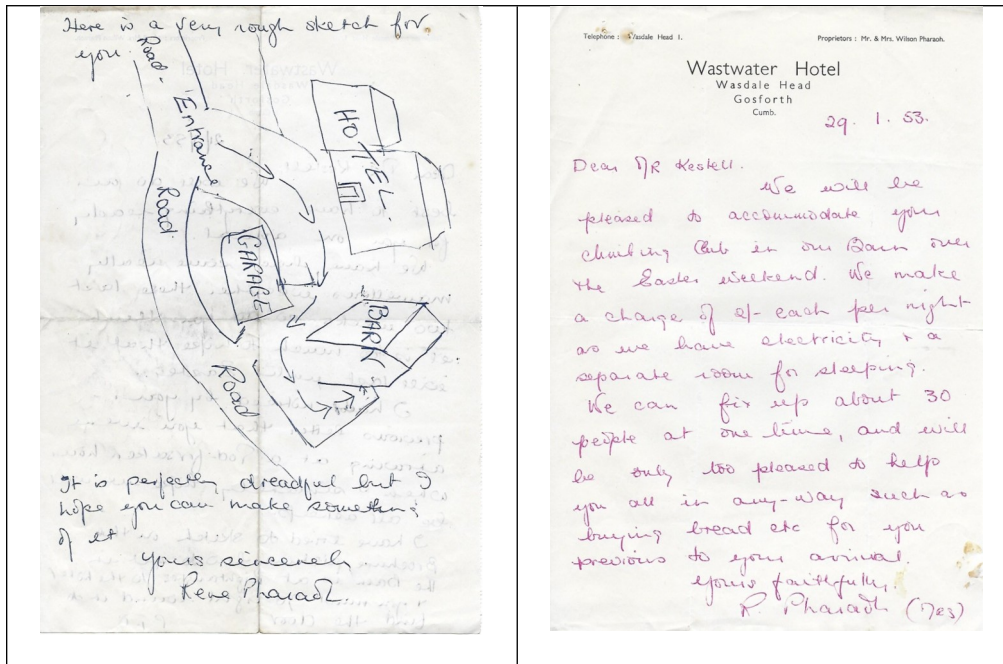 Here is a very rough sketch for
you.
Road.
Entrance.
Road
HOTEL.
GARAGE
BARN
Road
It is perfectly dreadful but I
hope you can make something
of it
Yours sincerely
Rene Pharaoh
Telephone : Wasdale Head 1.
Proprietors : Mr. & Mrs. Wilson Pharaoh.
Wastwater Hotel
Wasdale Head
Gosforth
Cumb.
29. 1. 53.
Dear Mr Kestell.
We will be
pleased to accommodate your
climbing Club in our Barn over
the Easter weekend. We make
a charge of 2/- each per night
as we have electricity & a
separate room for sleeping.
We can fix up about 30
people at one time, and will
be only too pleased to help
you all in any-way such as
buying bread etc for you
previous to your arrival.
Yours faithfully.
R. Pharaoh (Mrs)